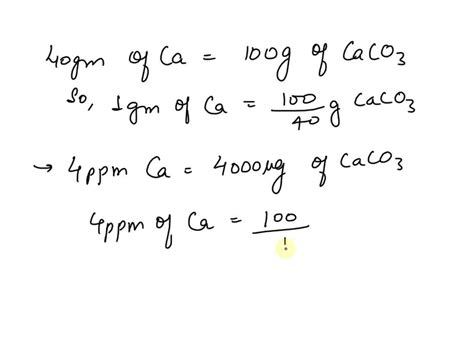 40gm of Ca = 100g of CaCO3
So, 1gm of Ca = 100/40 g CaCO3
→ 4ppm Ca = 4000μg of CaCO3
4ppm of Ca = 100/